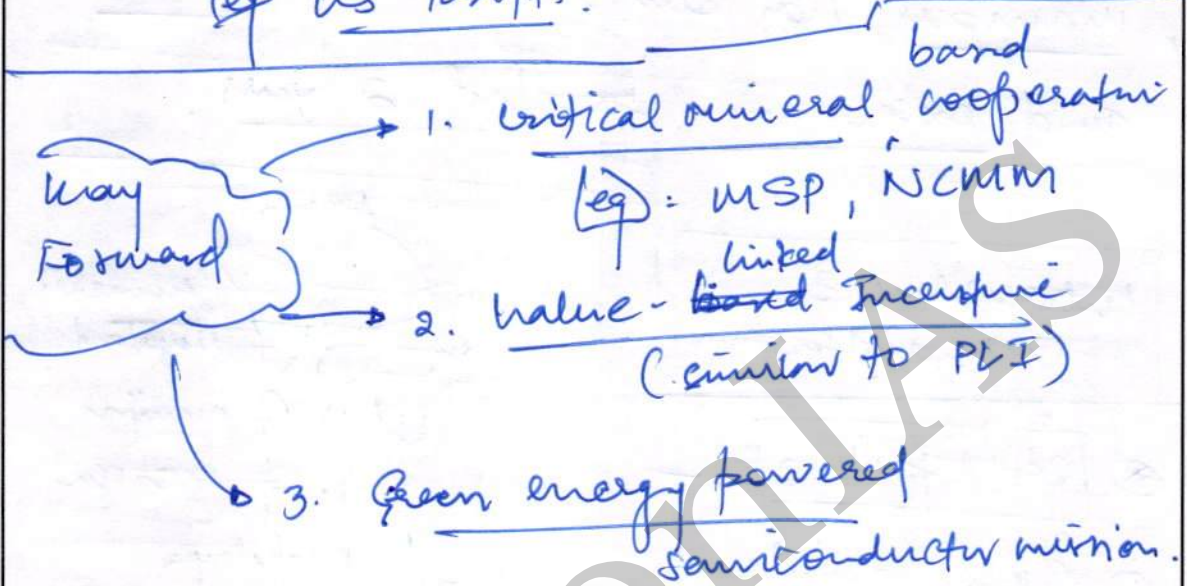 eg us
based
1. critical mineral cooperation
Way
Forward
(eg): MSP, NCMM
linked
2. Value-based Incentive
(similar to PLI)
3. Green energy powered
semiconductor mission.
nIAS